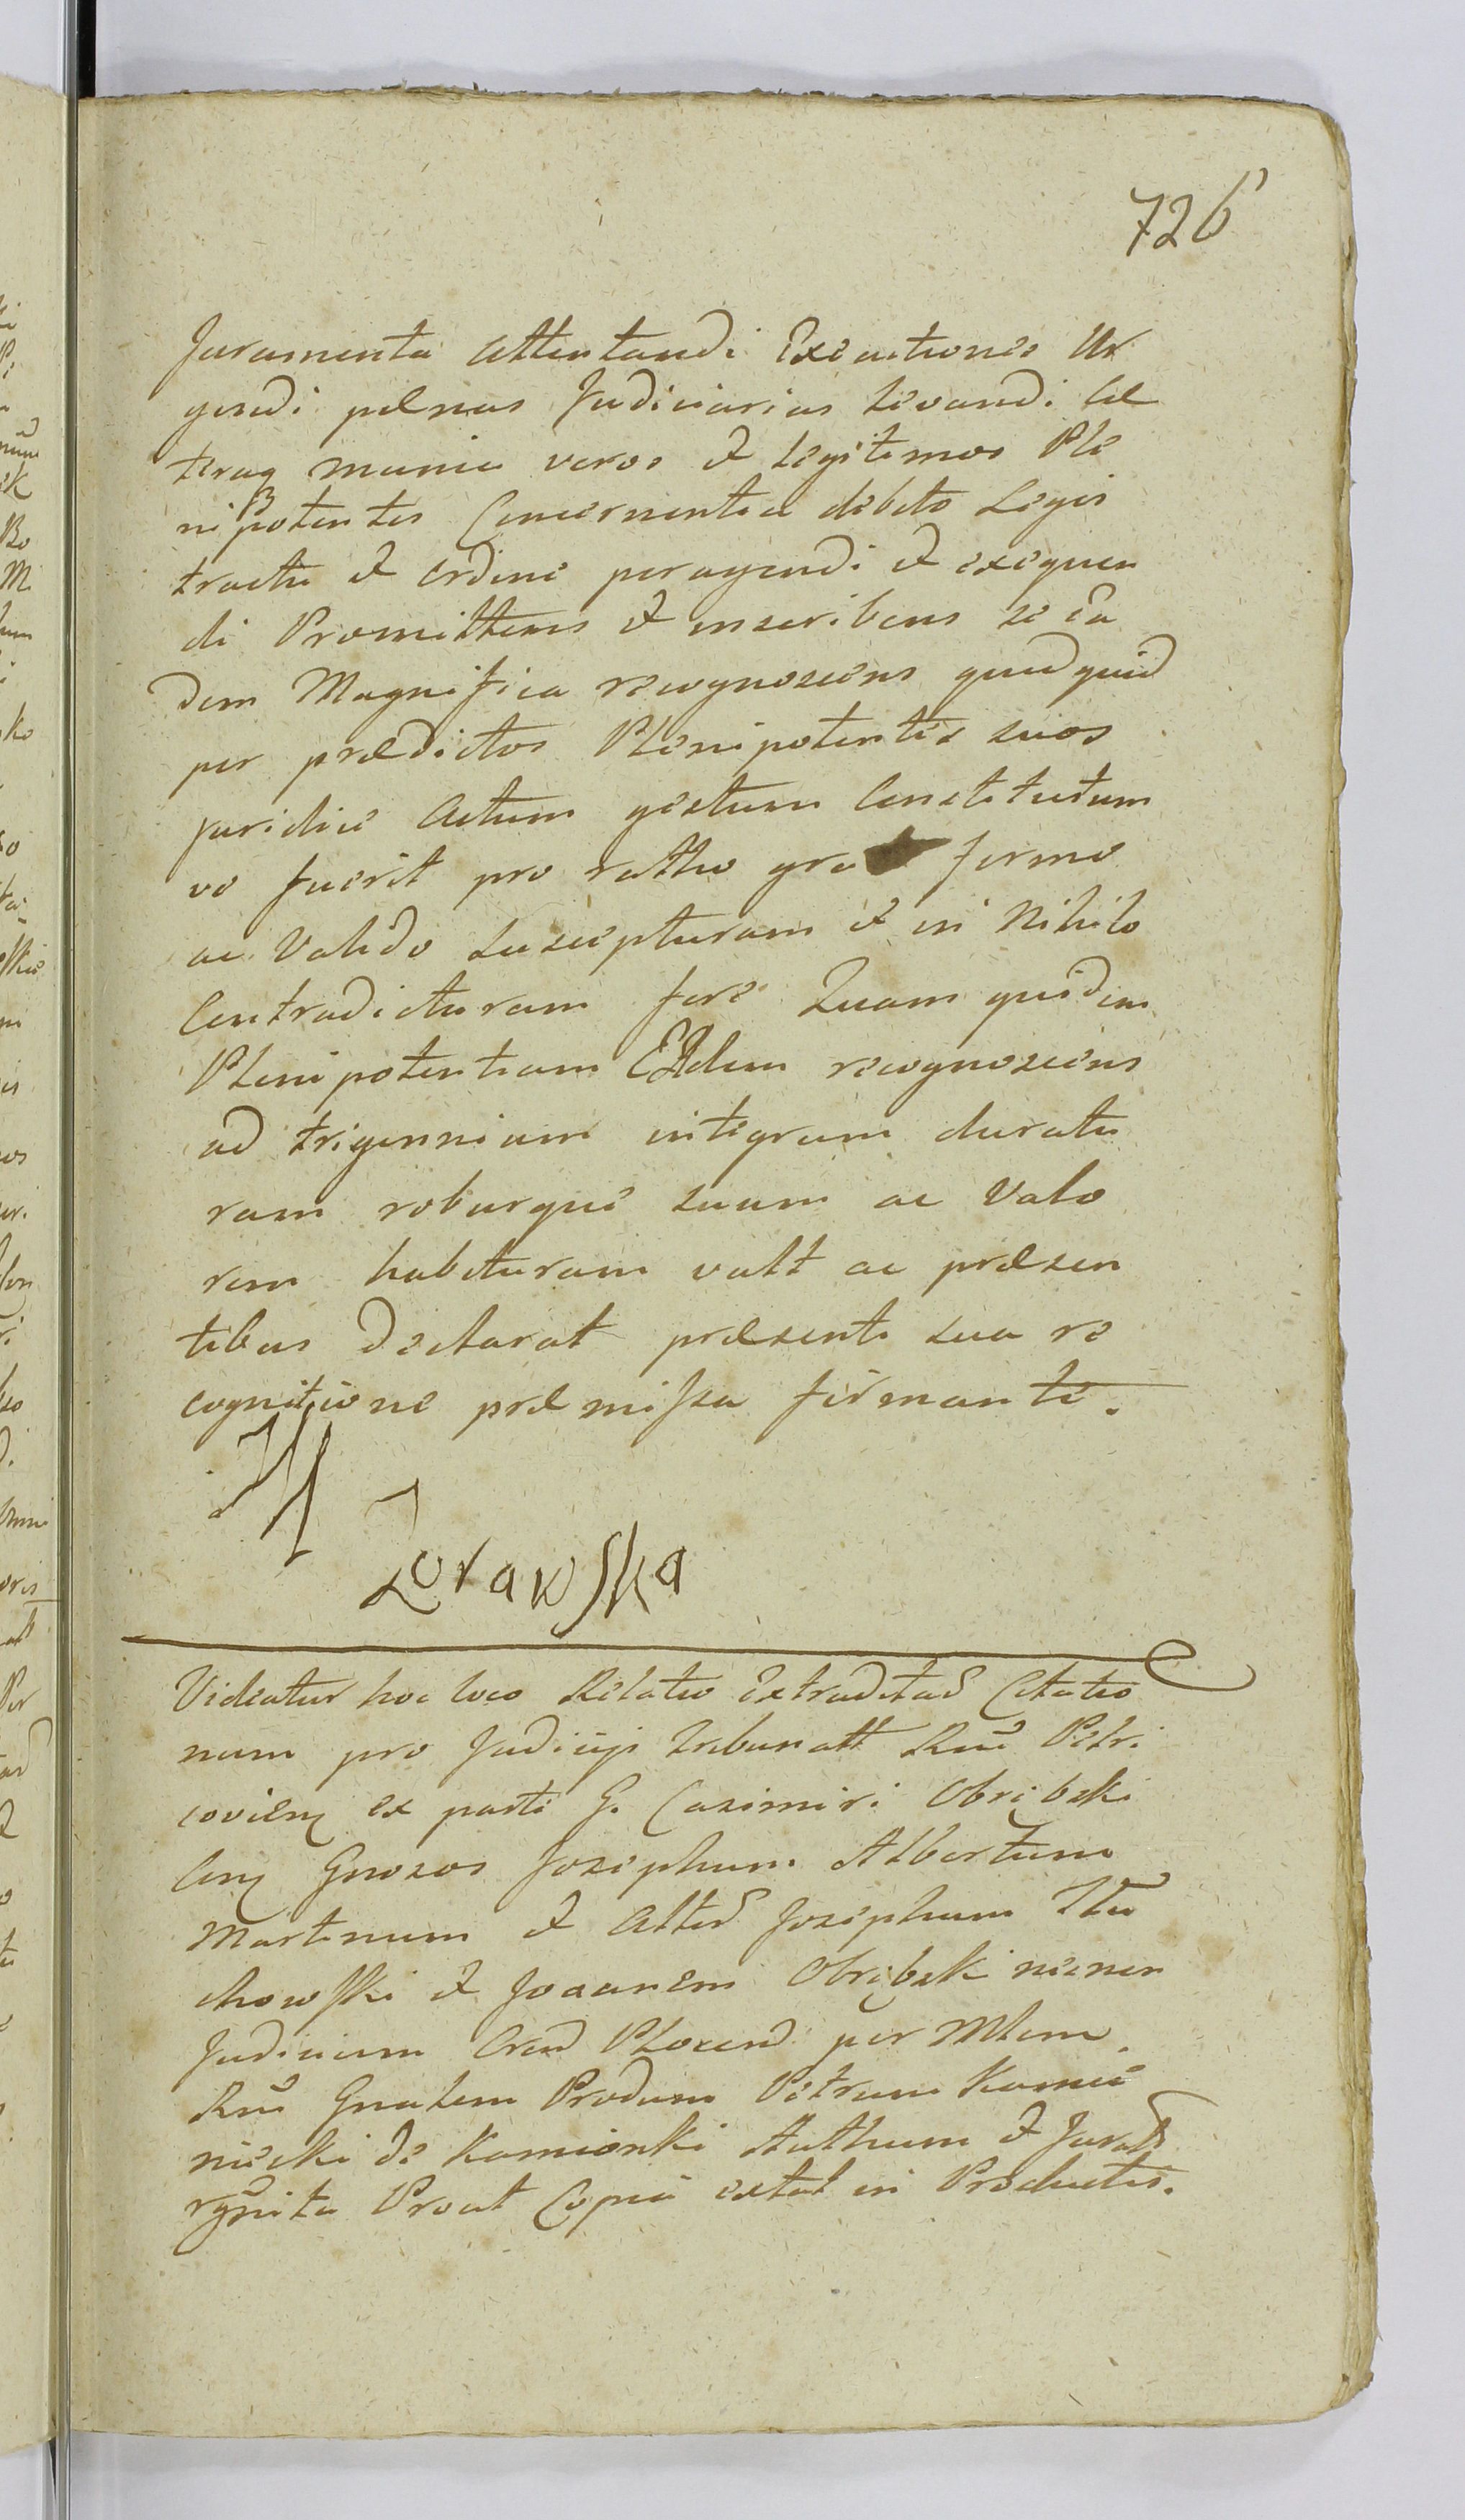 726
Juramenta attentandi Executiones Ur
gendi pænas Judiciarias Levandi Cæ
teraq munia veros et Legitimos Ple
nipotentes Concernentia debito Legis
tractu et ordine peragendi et exequen
di Promittens et inscribens se Ea
dem Magnifica recognoscens quidquid
per prædictos Plenipotentes suos
juridice Actum gestum Constitutum
ve fuerit pro ratho gra firmo
ac Valido suscepturam et in Nihilo
Contradicturam fore Quam quidem
Plenipotentiam EAdem recognoscens
ad trigennium integrum duratu
ram roburque suum ac Valo
rem habituram vult ac præsen
tibus declarat præsenti sua re
cognitione præmissa firmante.
M J
Zorawska
Videatur hoc loco Relatio Extraditas Citatio
num pro Judicijs Tribunali Rni Petri
covien ex parte G. Casimiri Obrębski
Con Gnosos Josephum Albertum
Martinum et Josephum
chowski et Joannem Obrębski necnon
Judicium per Mtem
Rni Gnalem Produm Petrum Kamie
niecki de Kamionki Authum et Jurat
rgnita Prout Copia extat in Productis.